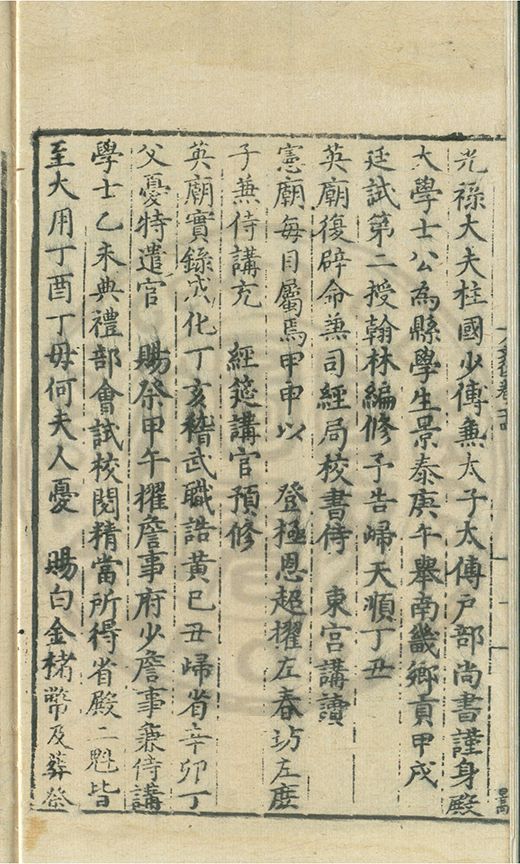 光祿大夫柱國少傅兼太子太傅戶部尚書謹身殿
大學士公為縣學生景泰庚午舉南畿鄉貢甲戌
廷試第二授翰林編修予告歸天順丁丑
英廟復辟命兼司經局校書侍　東宮講讀
憲廟每目屬焉甲申以　登極恩超擢左春坊左庶
子兼侍講充　經筵講官預修
英廟實錄成化丁亥稽武職誥黃己丑歸省辛卯丁
父憂特遣官　賜祭甲午擢詹事府少詹事兼侍講
學士乙未典禮部會試校閱精當所得省殿二魁皆
至大用丁酉丁母何夫人憂　賜白金楮幣及葬祭